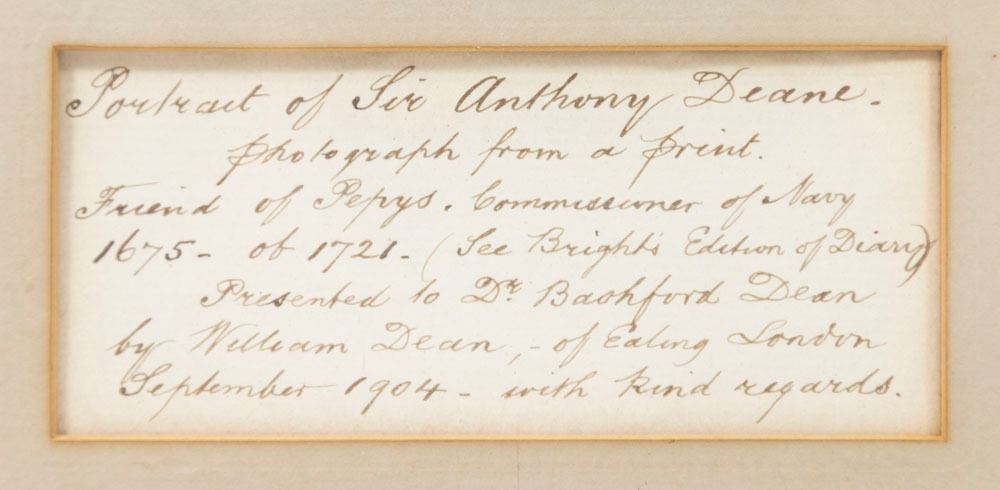 Portrait of Sir Anthony Deane.
photograph from a print.
Friend of Pepys. Commissioner of Navy
1675 - ob 1721 - (See Bright's Edition of Diary)
Presented to Dr. Bashford Dean
by William Dean, - of Ealing London
September 1904 - with kind regards.